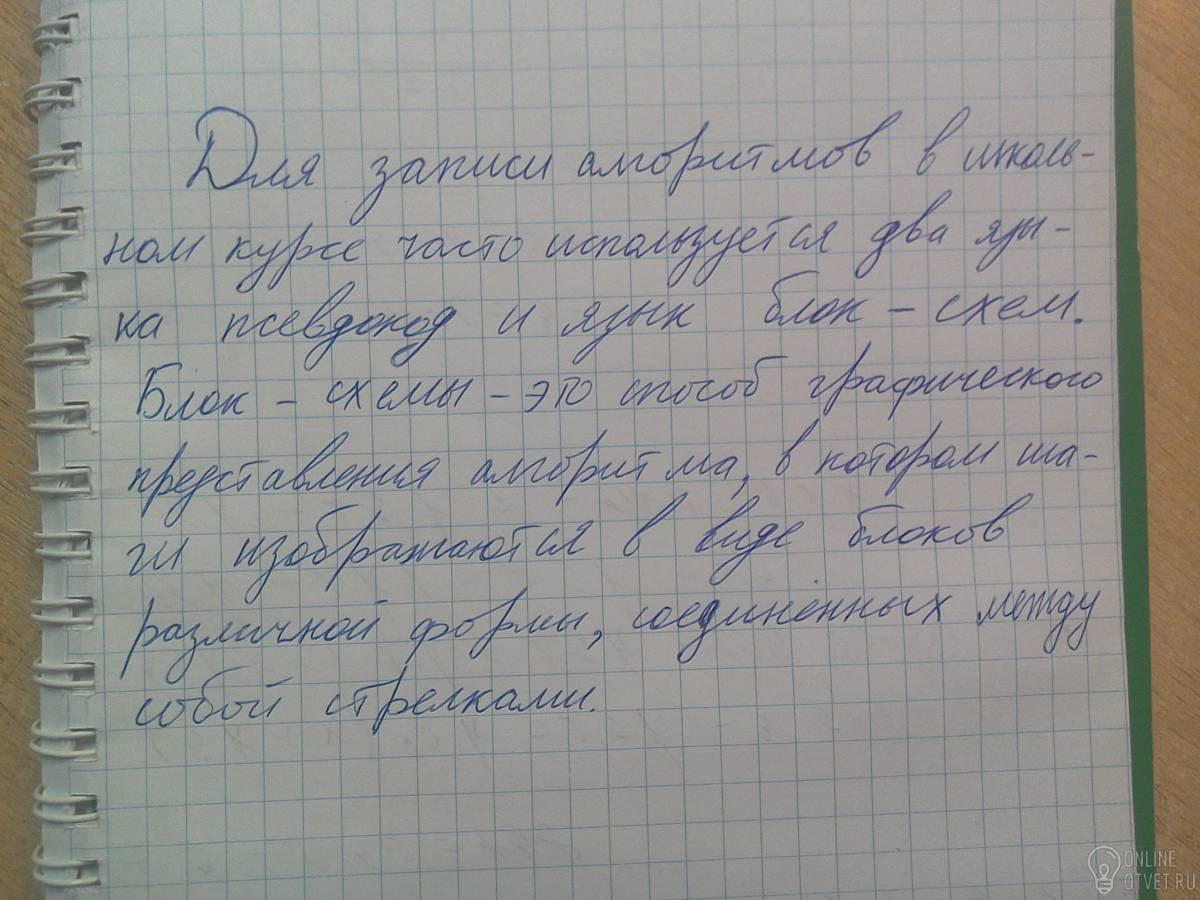 Для записи алгоритмов в школь-
ном курсе часто используется два язы-
ка псевдокод и язык блок - схем.
Блок - схемы - это способ графического
представления алгоритма, в котором ша-
ги изображаются в виде блоков
различной формы, соединенных между
собой стрелками.
ONLINE
OTVET.RU